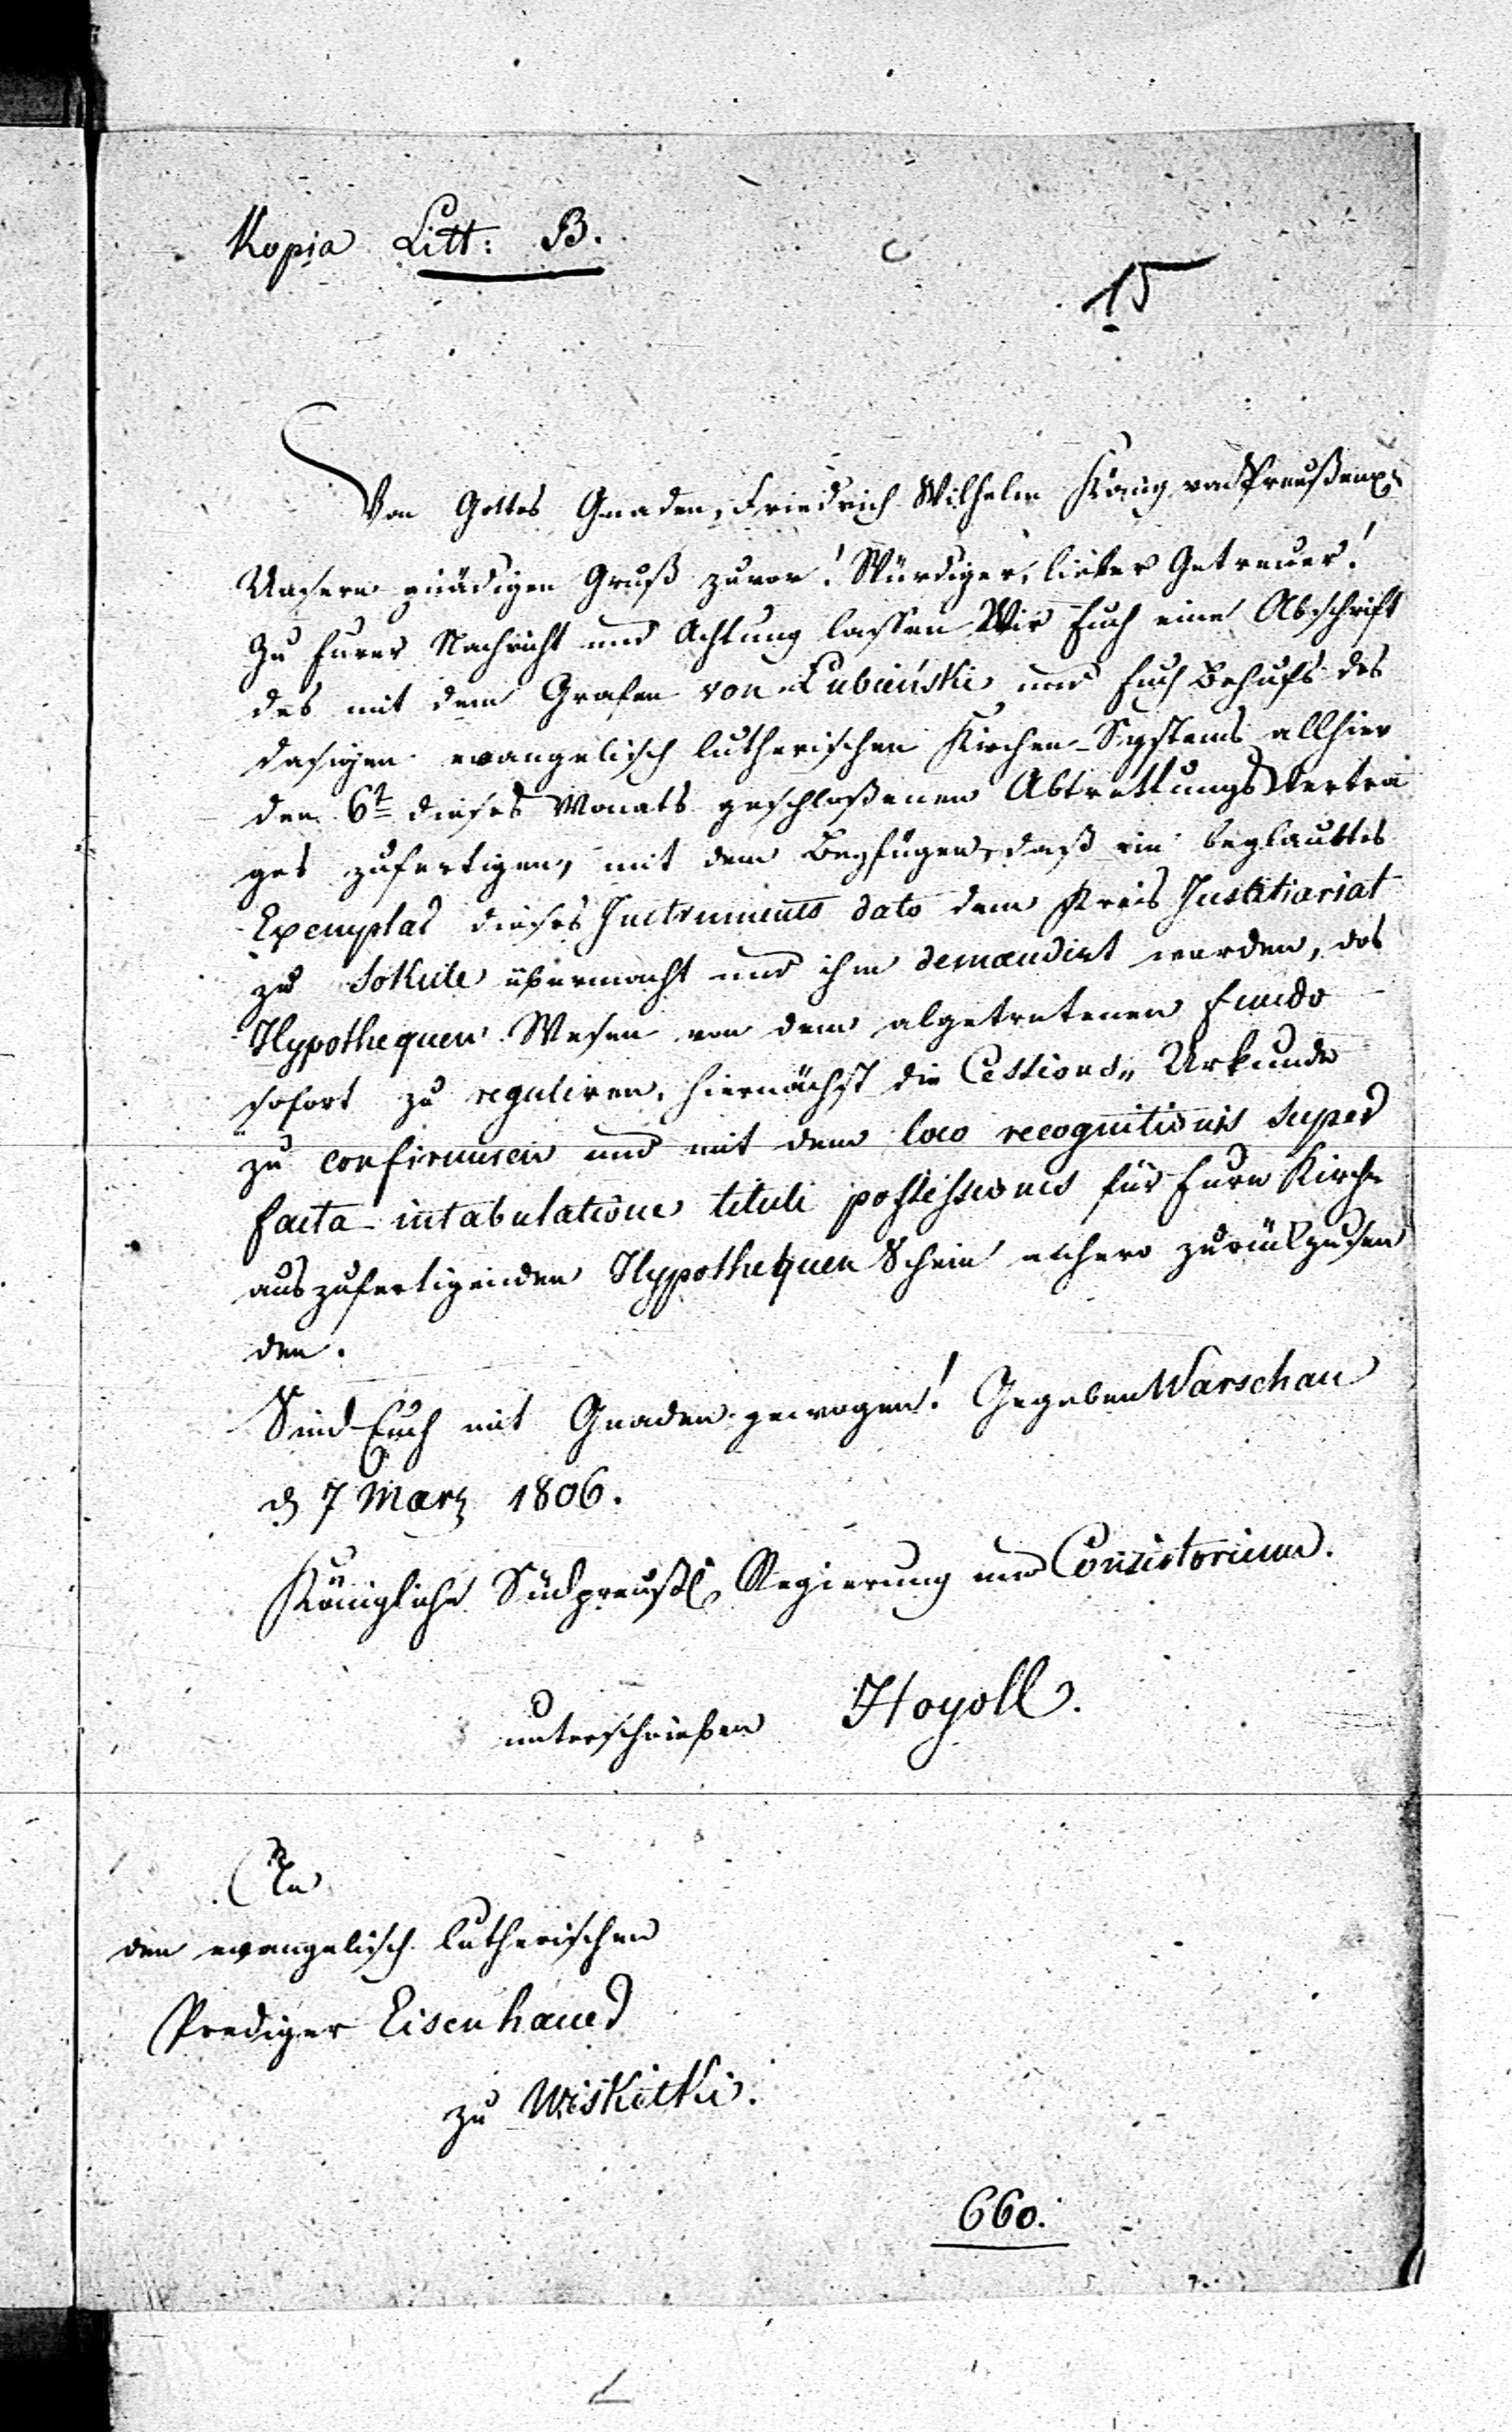 Kopia Litt: B.
15
Von Gottes Gnaden, Friedrich Wilhelm König von Preußen p
Unsern gnädigen Gruß zuvor! Würdiger, lieber Getreuer!
Zu Eurer Nachricht und Achtung lassen Wir Euch eine Abschrift
des mit dem Grafen von Łubieński und Euch behufs des
dasigen evangelisch lutherischen Kirchen-Systems allhier
den 6t dieses Monats geschloßenen Abtrettungs Vertra
ges zufertigen, mit dem Beyfügen, daß ein beglaubtes
Exemplar dieses Instruments dato dem Kreis Justitiariat
zu übermacht und ihm demandirt worden, das
Hypothequen Wesen von dem abgetretenen Fundo
sofort zu reguliren, hiernächst die Cessions„ Urkunde
zu confirmiren und mit dem loco recognitionis super
facta intabulatione tituli possessionis für Eure Kirche
auszufertigenden Hypothequen Schein anhero zurückzusen
den.
Sind Euch mit Gnaden gewogen! Gegeben Warschau
d 7 März 1806.
Königliche Südpreußl Regierung und Consistorium.
unterschrieben Hoyoll.
An
den evangelisch lutherischen
Prediger Eisenhauer
zu Wiskitki.
660.